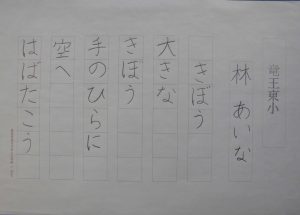 竜王東小
林 あいな
きぼう
大きな
きぼう
手のひらに
空へ
はばたこう